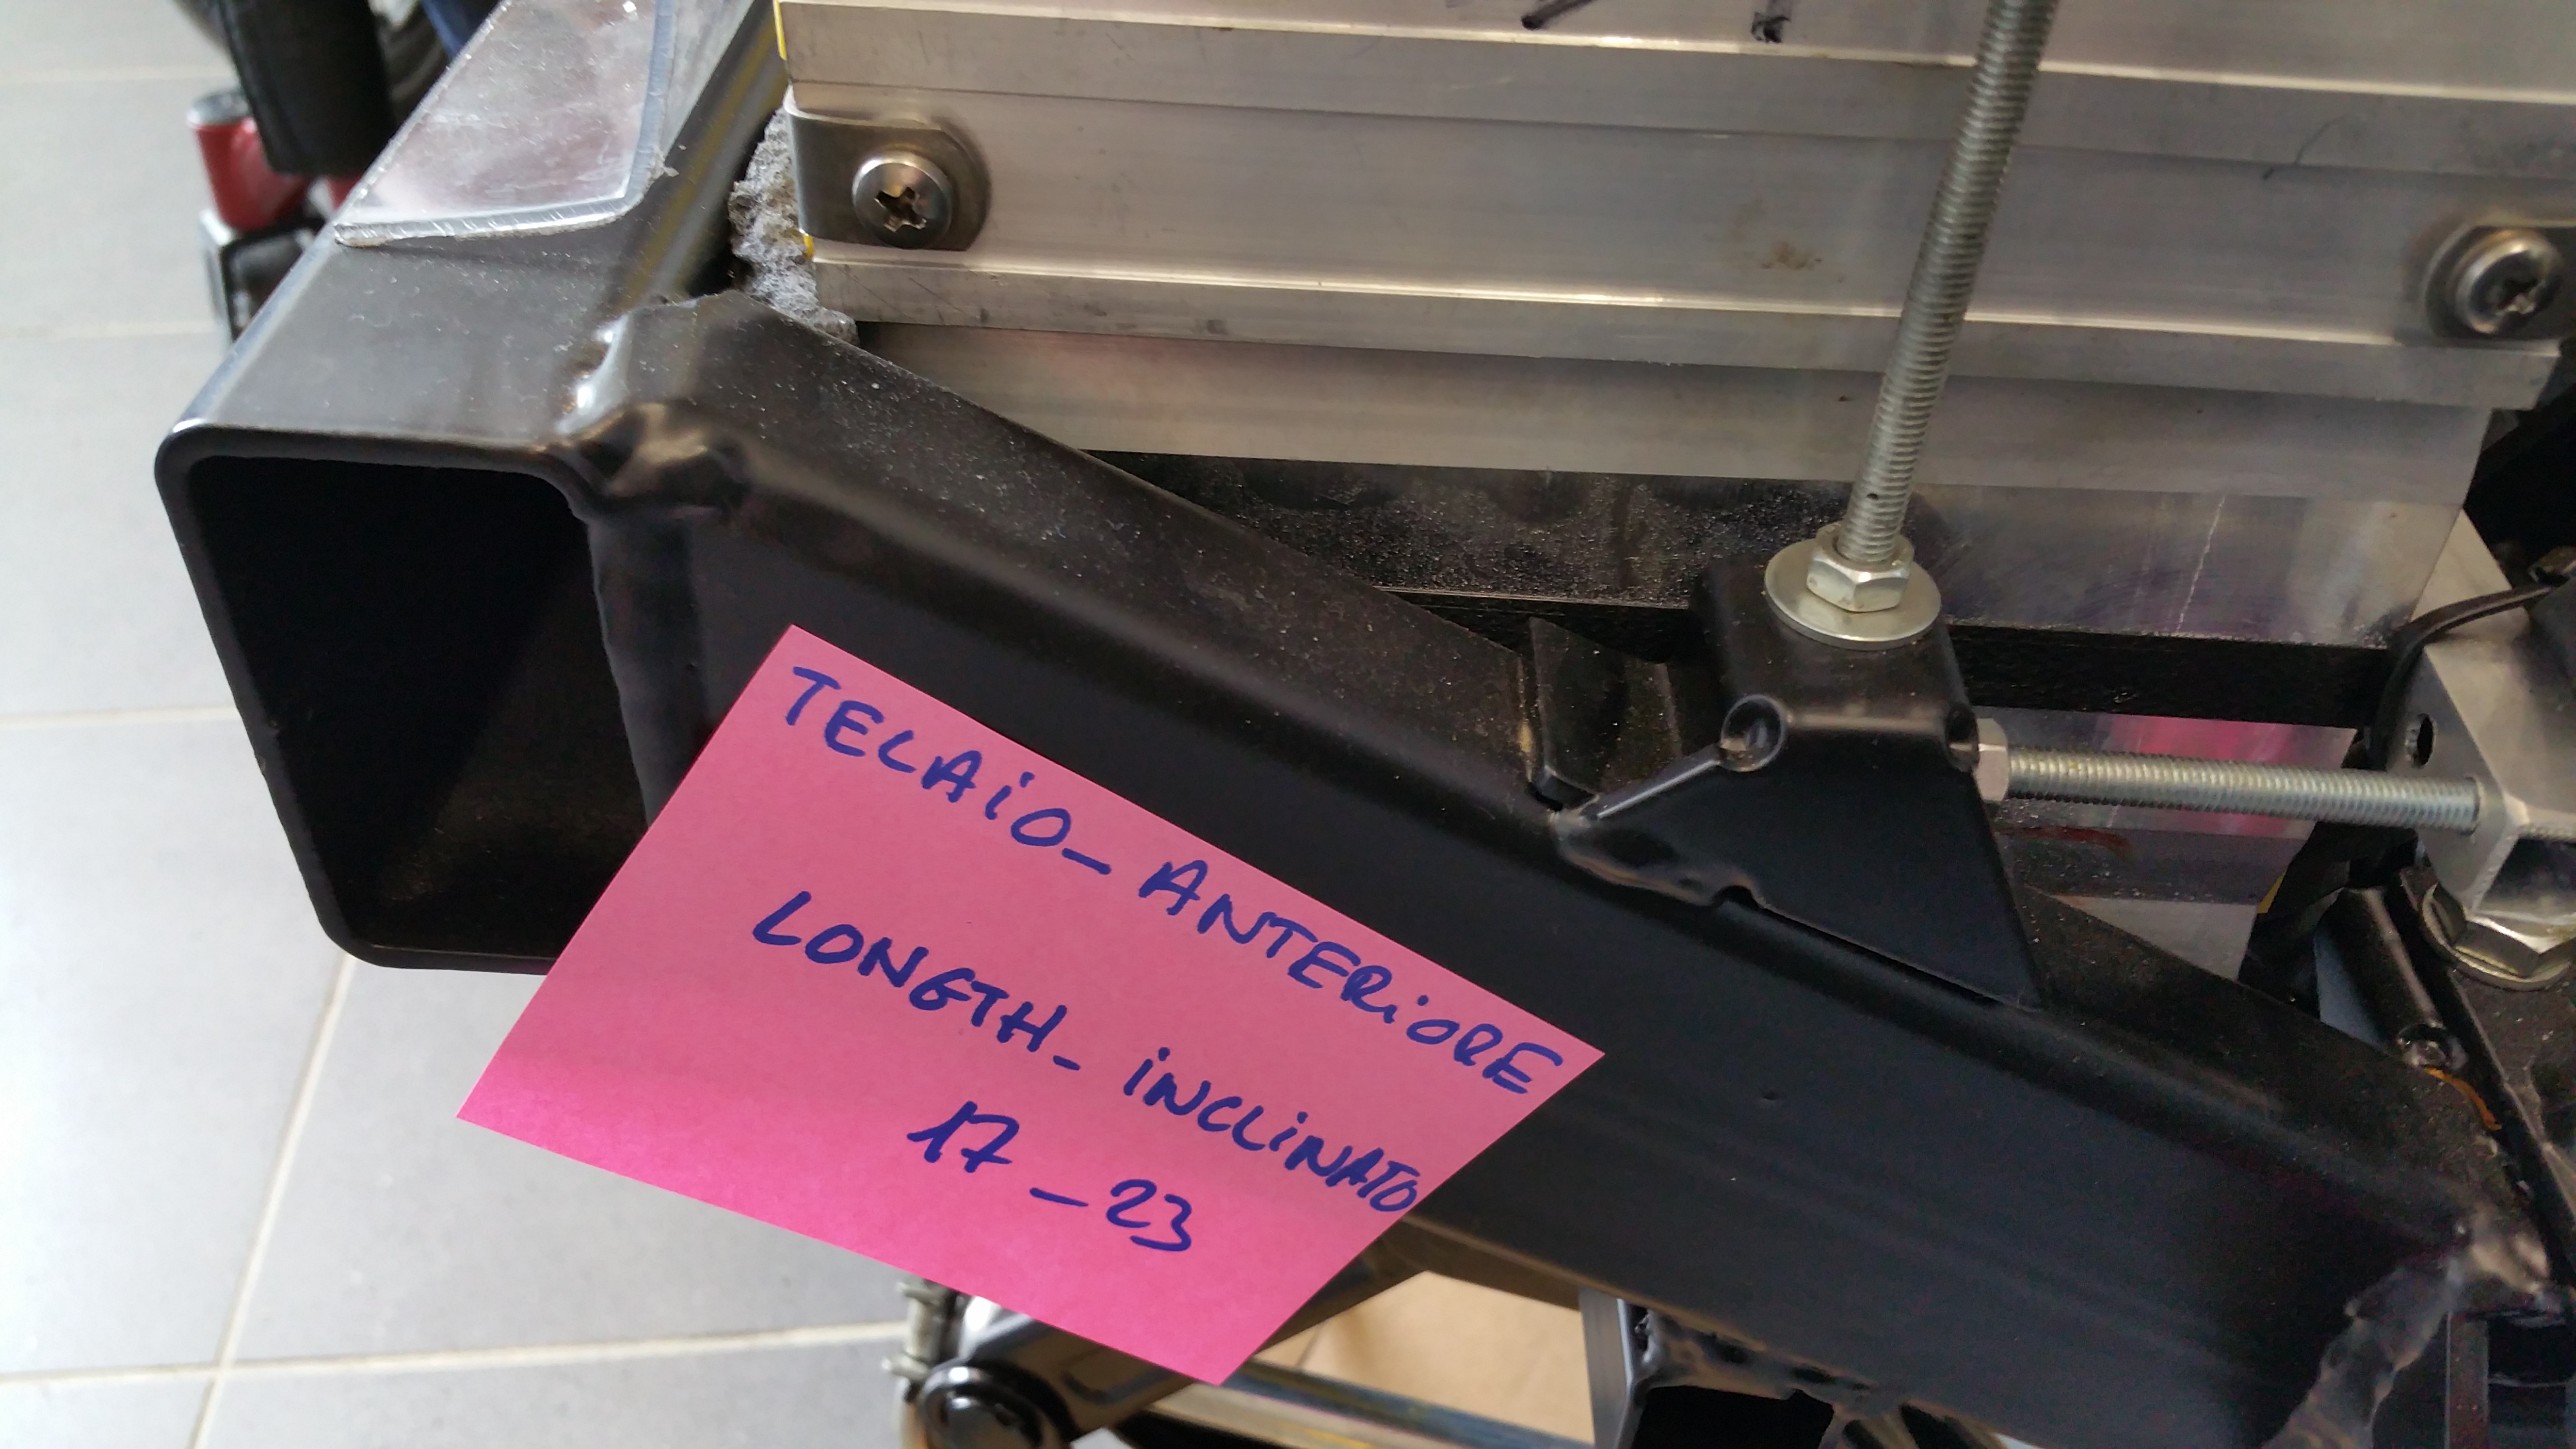 TELAiO_ANTERiORE
LONGTH_iNCLiNATO
17_23